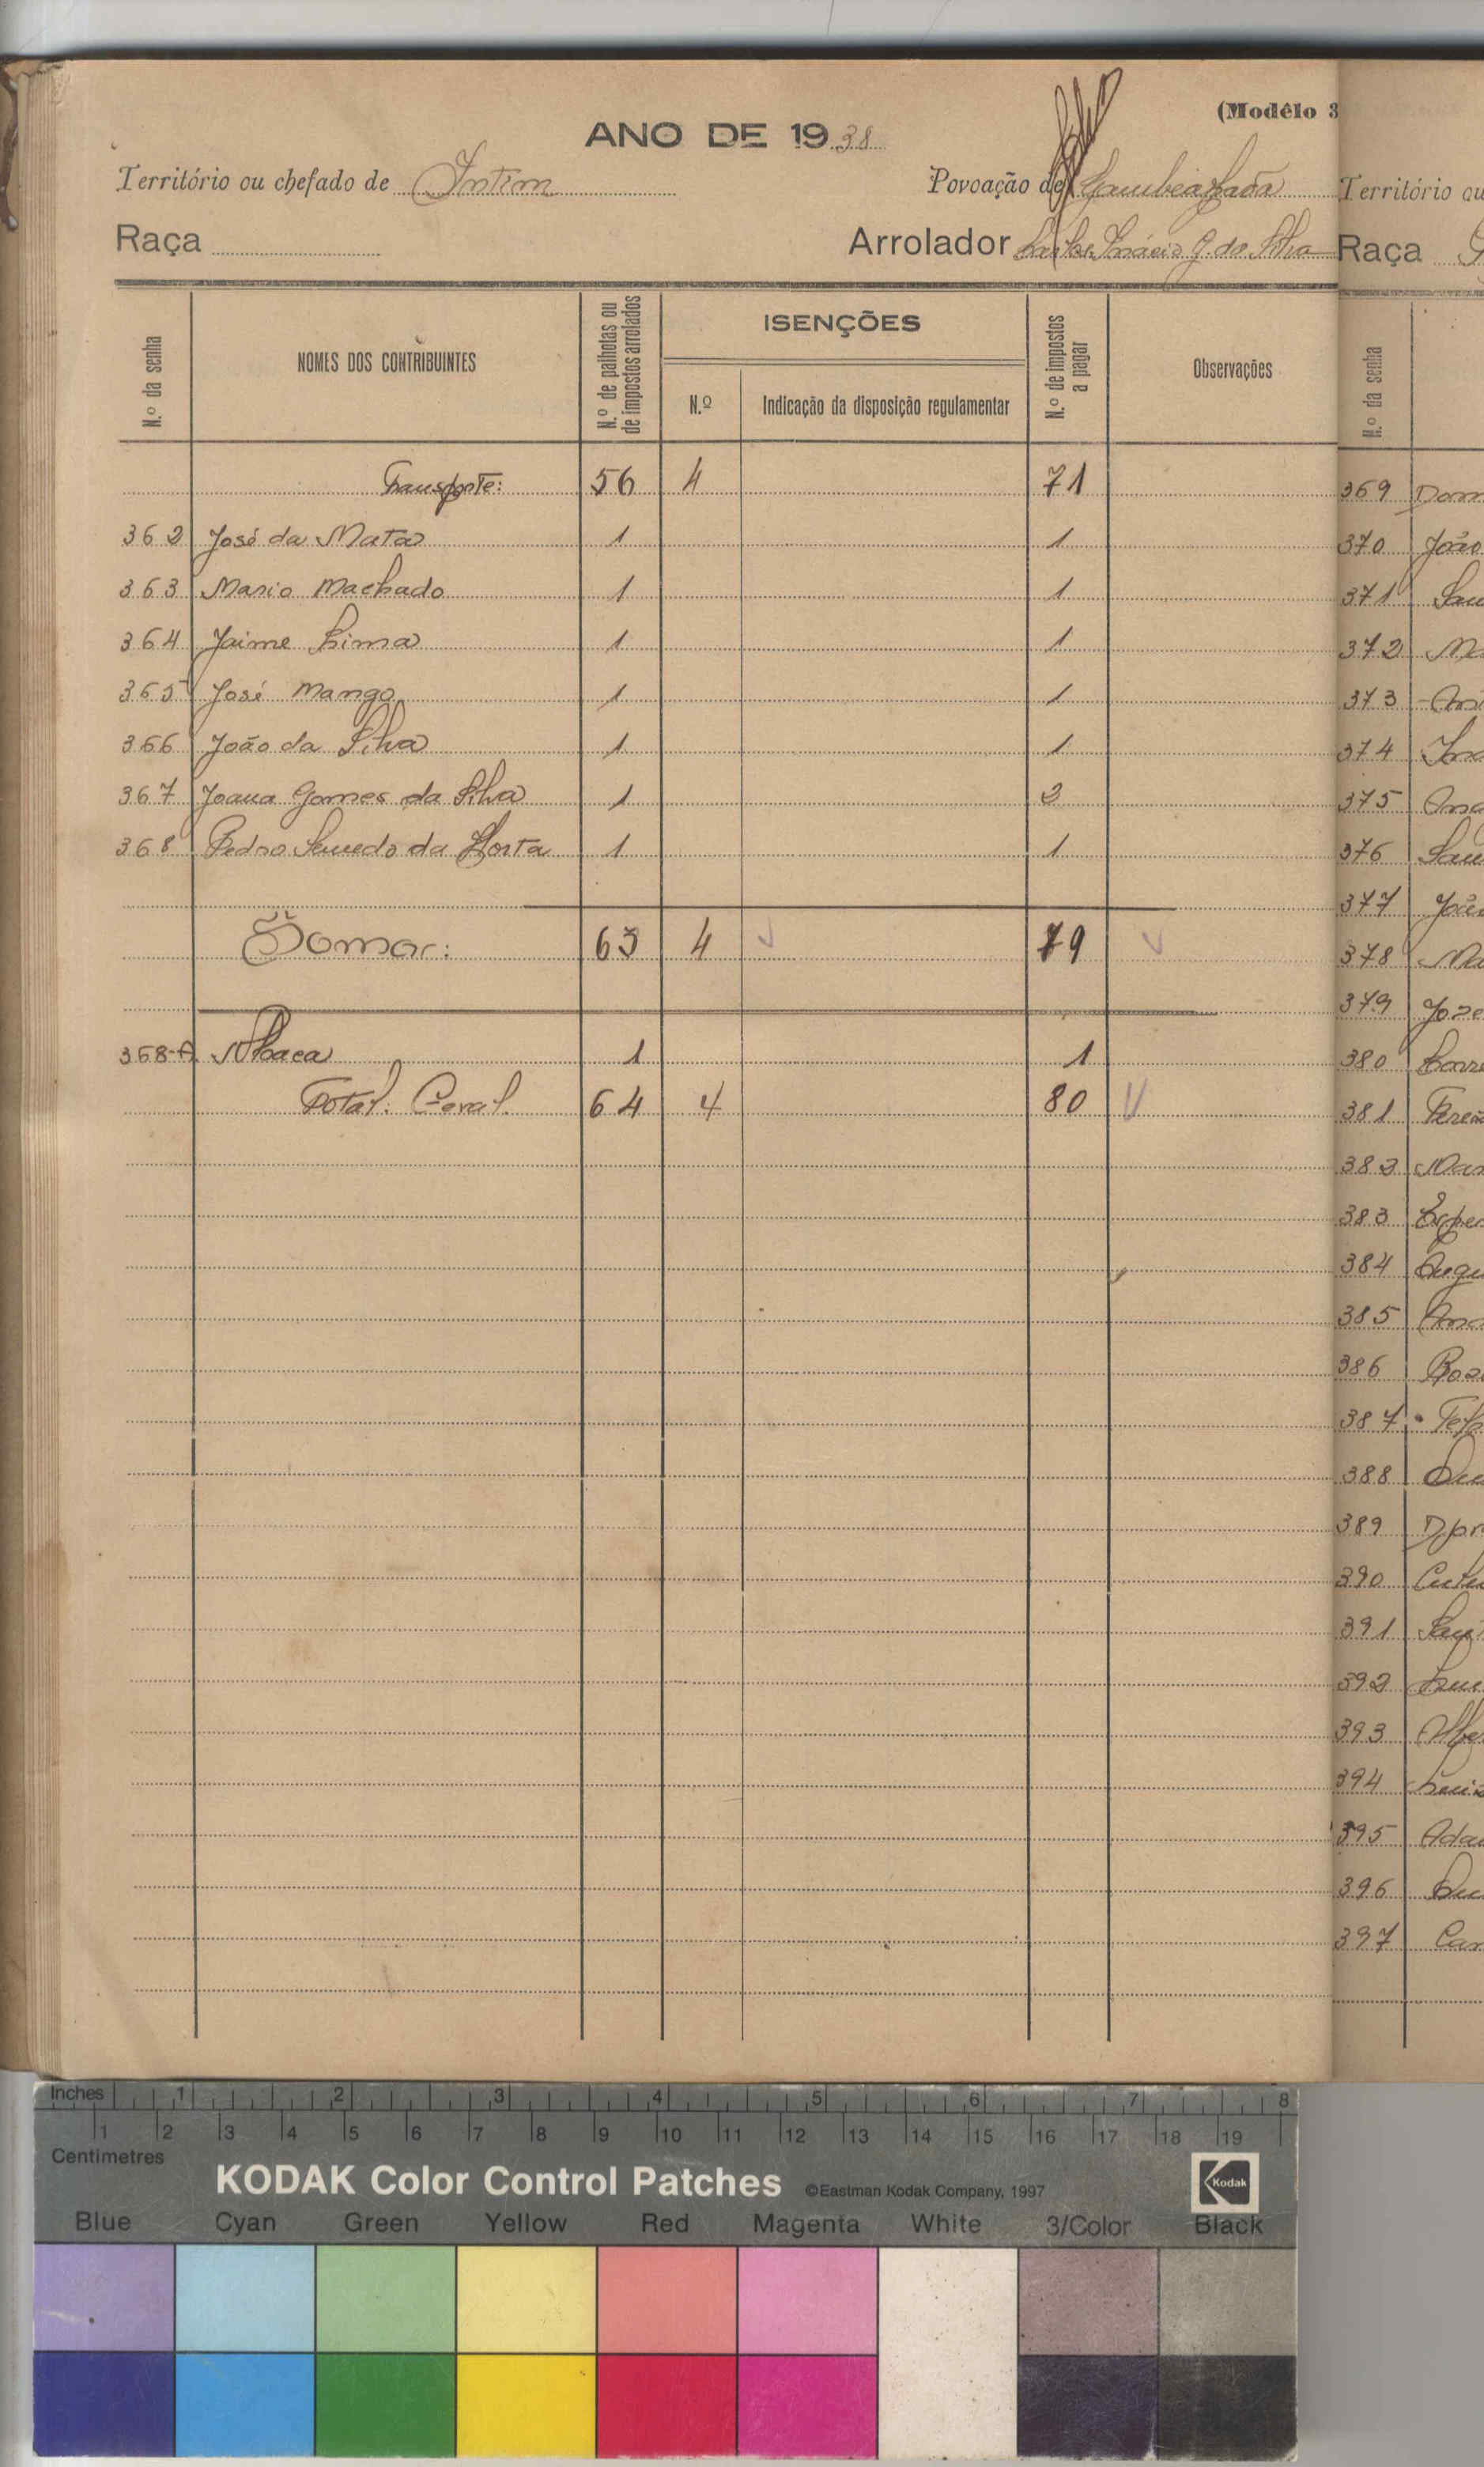 (Modêlo 3
ANO DE 1938
Território ou chefado de Intim
Povoação de Gambeafada
Raça
Arrolador Carlos Inácio G. da Silva
N.º da senha
NOMES DOS CONTRIBUINTES
N.º de palhotas ou de impostos arrolados
ISENÇÕES
N.º
Indicação da disposição regulamentar
N.º de impostos a pagar
Observações
Transporte: 56 4 71
362 José da Mata 1 1
363 Mario Machado 1 1
364 Jaime Lima 1 1
365 José Mango 1 1
366 João da Silva 1 1
367 Joana Gomes da Silva 1 2
368 Pedro Semedo da Horta 1 1
Somar: 63 4 79
368-A Nhaca 1 1
Total Geral 64 4 80
Território ou
Raça
N.º da senha
369 Dom
370 João
371
372 Ma
373
374
375
376
377
378 Ma
379 Joze
380
381
382 Mar
383
384
385
386
387
388
389
390
391
392
393
394
395 Ada
396
397 Car
Inches 1 2 3 4 5 6 7 8
1 2 3 4 5 6 7 8 9 10 11 12 13 14 15 16 17 18 19
Centimetres
KODAK Color Control Patches ©Eastman Kodak Company, 1997 Kodak
Blue Cyan Green Yellow Red Magenta White 3/Color Black